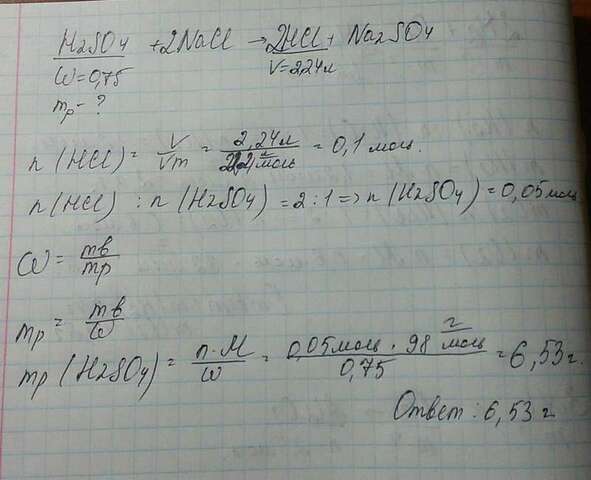 H₂SO₄ + 2NaCl → 2HCl + Na₂SO₄
ω = 0,75 V = 2,24л
mр - ?
n (HCl) = V/Vm = 2,24л / 22,4 л/моль = 0,1 моль.
n (HCl) : n (H₂SO₄) = 2 : 1 => n (H₂SO₄) = 0,05 моль
ω = mв/mр
mр = mв/ω
mр (H₂SO₄) = n · M / ω = 0,05 моль · 98 г/моль / 0,75 = 6,53 г.
Ответ : 6,53 г